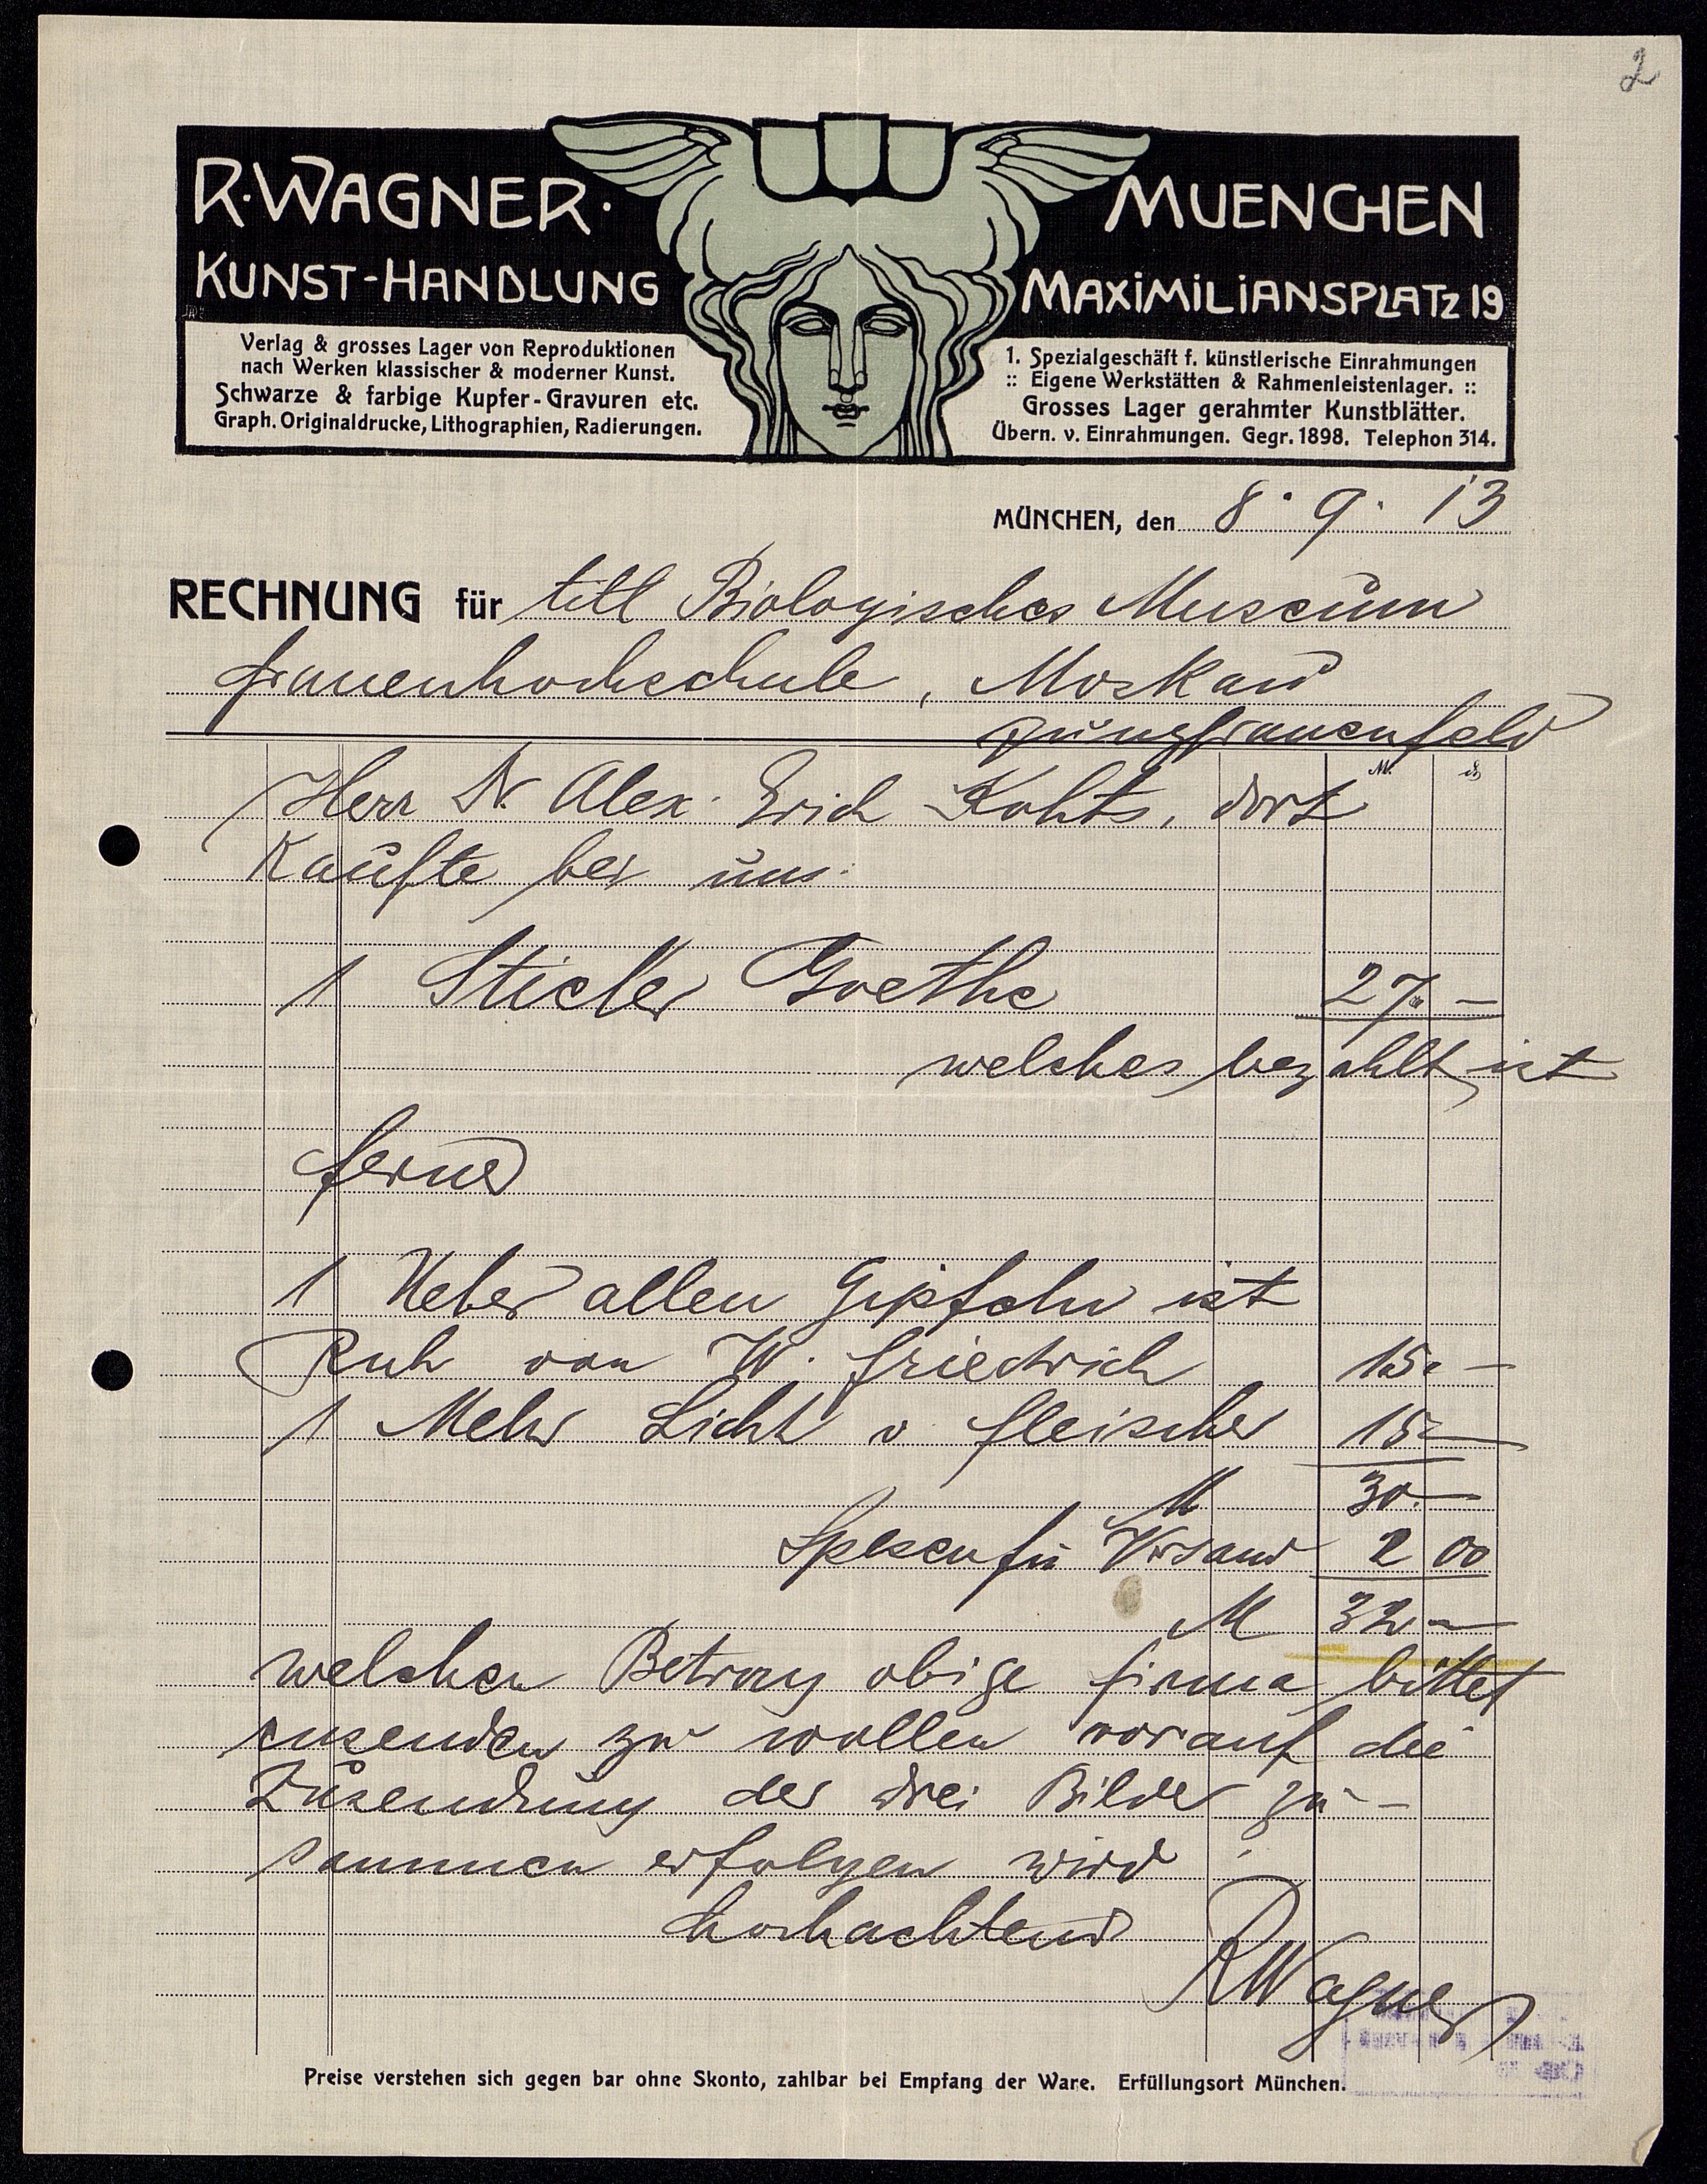 2
R. WAGNER.
KUNST-HANDLUNG
MUENCHEN
MAXIMILIANSPLATZ 19
Verlag & grosses Lager von Reproduktionen
nach Werken klassischer & moderner Kunst.
Schwarze & farbige Kupfer-Gravuren etc.
Graph. Originaldrucke, Lithographien, Radierungen.
1. Spezialgeschäft f. künstlerische Einrahmungen
:: Eigene Werkstätten & Rahmenleistenlager. ::
Grosses Lager gerahmter Kunstblätter.
Übern. v. Einrahmungen. Gegr. 1898. Telephon 314.
MÜNCHEN, den 8. 9. 13
RECHNUNG für titl Biologisches Museum
Frauenhochschule, Moskau
Jungfrauenfeld
M. ₰
Herr Dr. Alex. Erich Kohts, dort
kaufte bei uns:
1 Stieler Goethe 27. —
welches bezahlt ist
ferner
1 Ueber allen Gipfeln ist
Ruh von W. Friedrich 15. —
1 Mehr Licht v Fleischer 15 —
M 30. —
Spesen für Versand 2 00
M 32 —
welchen Betrag obige Firma bittet
einsenden zu wollen worauf die
Zusendung der drei Bilder zu-
sammen erfolgen wird.
Hochachtend
RWagner
Preise verstehen sich gegen bar ohne Skonto, zahlbar bei Empfang der Ware. Erfüllungsort München.